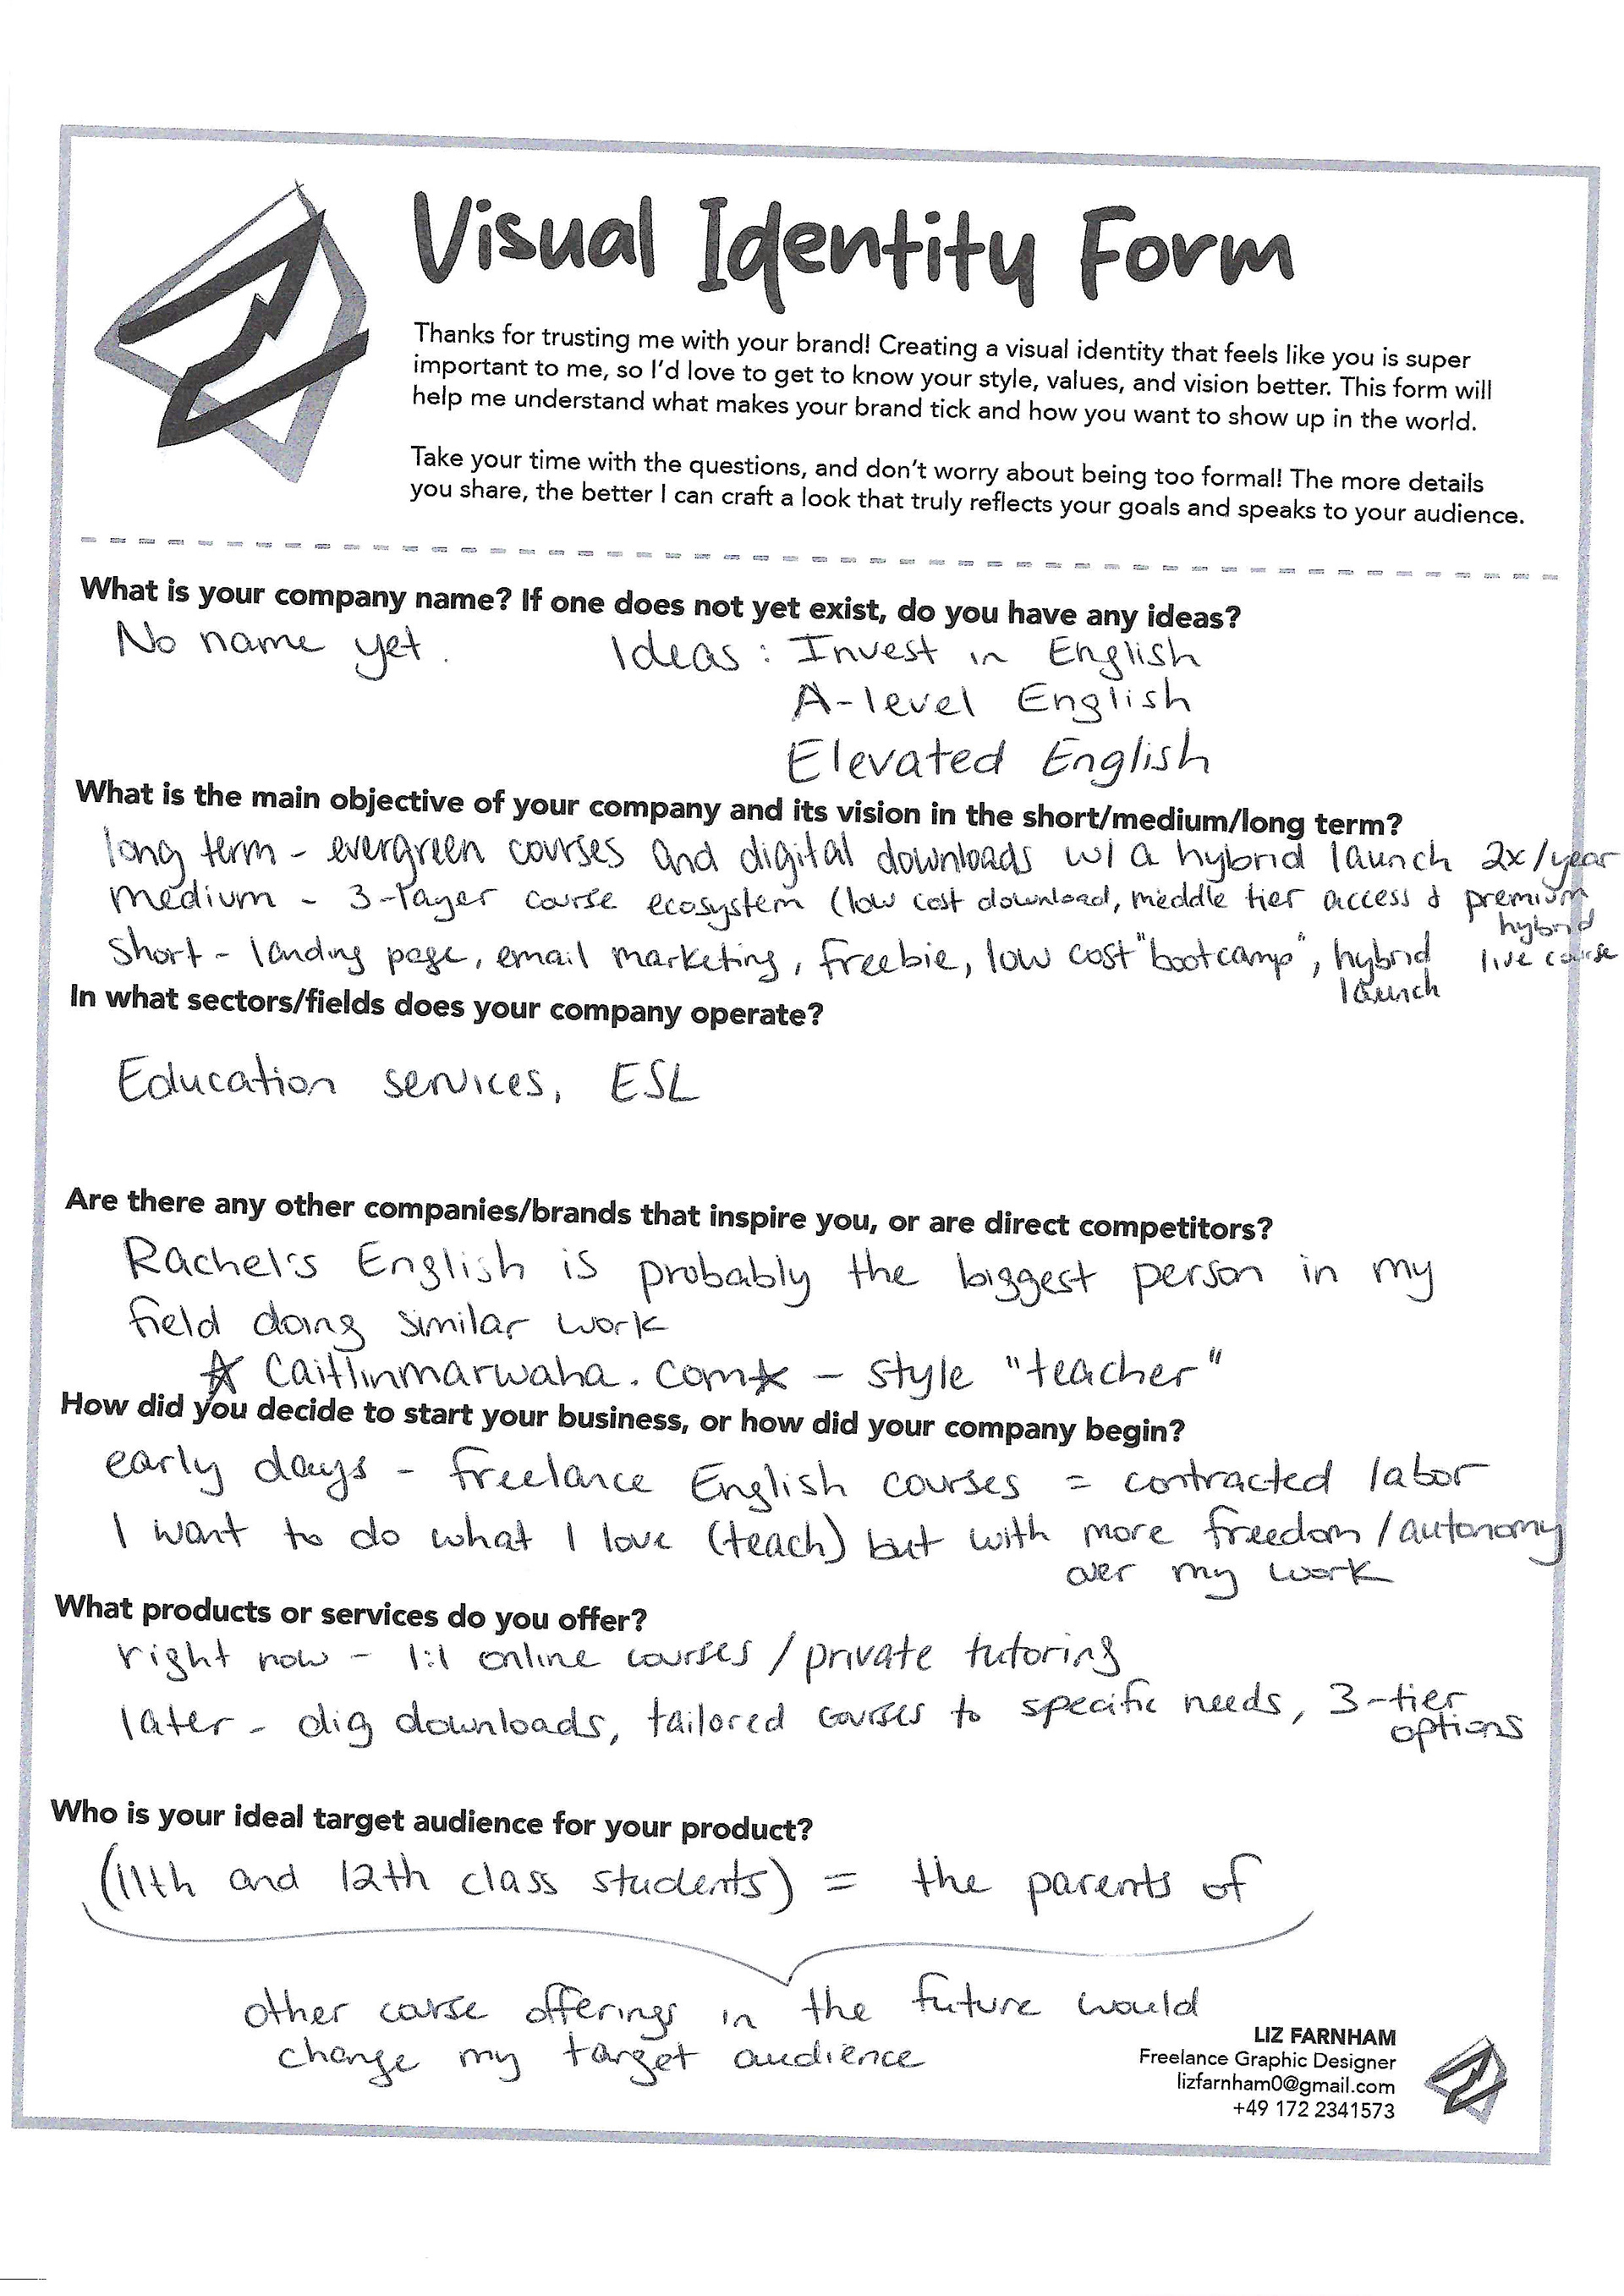 Visual Identity Form
Thanks for trusting me with your brand! Creating a visual identity that feels like you is super
important to me, so I'd love to get to know your style, values, and vision better. This form will
help me understand what makes your brand tick and how you want to show up in the world.
Take your time with the questions, and don't worry about being too formal! The more details
you share, the better I can craft a look that truly reflects your goals and speaks to your audience.
What is your company name? If one does not yet exist, do you have any ideas?
No name yet. Ideas: Invest in English
A-level English
Elevated English
What is the main objective of your company and its vision in the short/medium/long term?
long term - evergreen courses and digital downloads w/ a hybrid launch 2x/year
medium - 3-layer course ecosystem (low cost download, meddle tier access & premium
hybrid
live course
short - landing page, email marketing, freebie, low cost "bootcamp", hybrid
launch
In what sectors/fields does your company operate?
Education services, ESL
Are there any other companies/brands that inspire you, or are direct competitors?
Rachel's English is probably the biggest person in my
field doing similar work
☆ Caitlinmarwaha.com☆ - style "teacher"
How did you decide to start your business, or how did your company begin?
early days - freelance English courses = contracted labor
I want to do what I love (teach) but with more freedom/autonomy
over my work
What products or services do you offer?
right now - 1:1 online courses / private tutoring
later - dig downloads, tailored courses to specific needs, 3-tier
options
Who is your ideal target audience for your product?
(11th and 12th class students) = the parents of
other course offerings in the future would
change my target audience
LIZ FARNHAM
Freelance Graphic Designer
lizfarnham0@gmail.com
+49 172 2341573